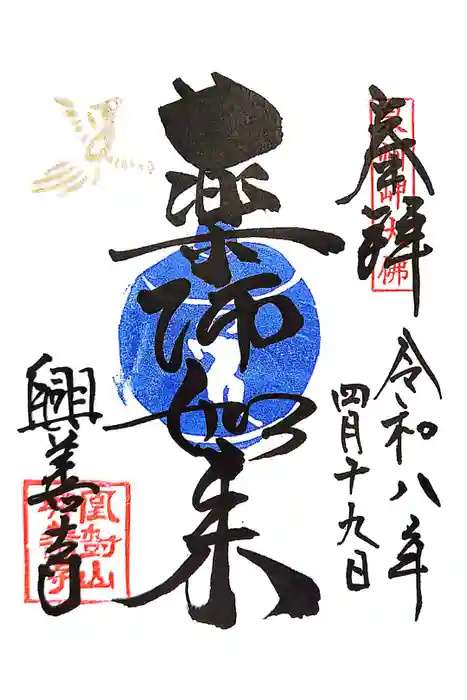 奉拝
令和八年
四月十九日
薬師如来
興善寺
鳳對山
興善寺